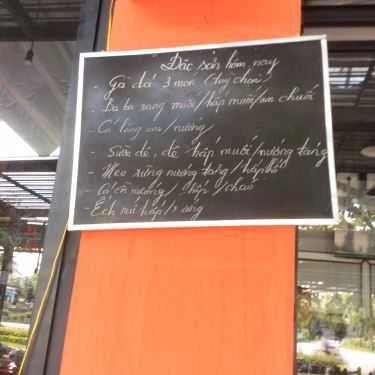 Đặc sản hôm nay
- Gà đá 3 món (tuỳ chọn)
- Ba ba rang muối/hấp muối/om chuối
- Cá lăng om/nướng/
- Sườn dê, dê hấp muối/nướng tảng
- Heo rừng nướng tảng/hấp
- Cá nướng/hấp/
- Ếch núi hấp/